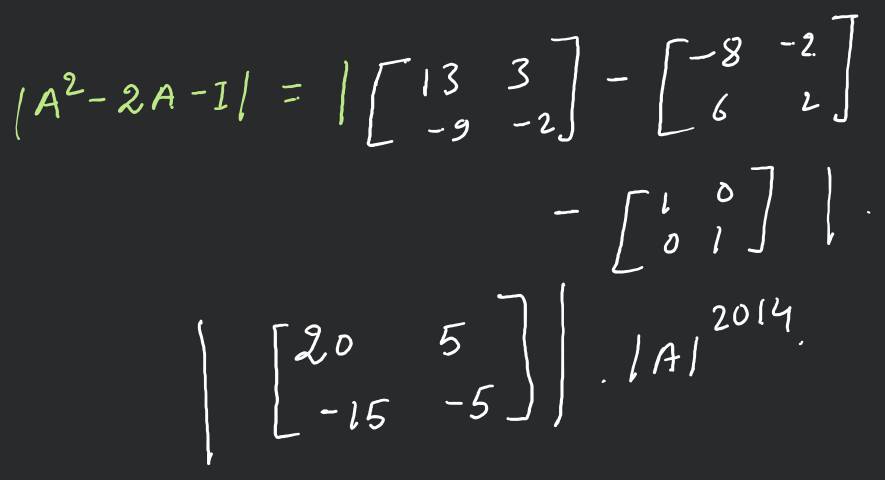 |A² - 2A - I| = | [13 3 -9 -2] - [-8 -2 6 2]
- [1 0 0 1] | .
| [20 5 -15 -5] | . |A|²⁰¹⁴.